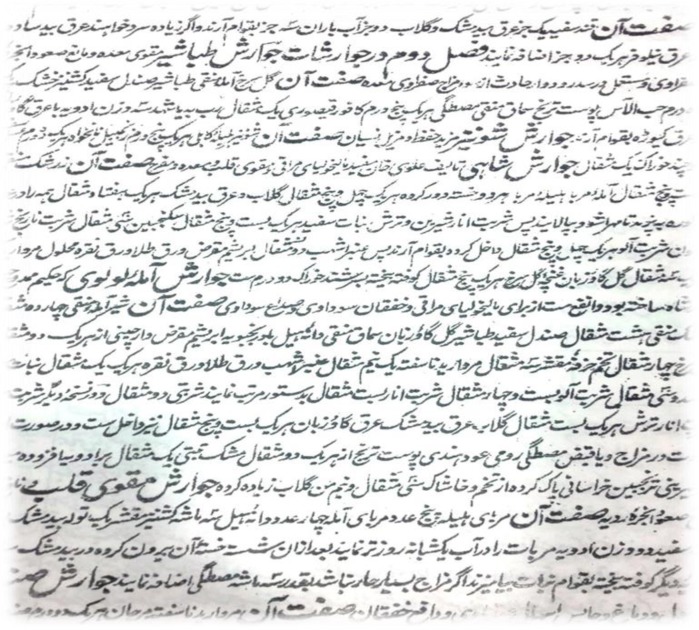 صفت آن قند سفید یک جز عرق بید مشک و گلاب دو جز آب باران سه جز بقوام آرند و اگر زیاده سرد خواهند عرق بید ساده
عرق نیلوفر هر یک دو جز اضافه نمایند فصل دوم در جوارشات جوارش طباشیر مقوی معده و مانع صعود ابخره
صفراوی و مستعمل در سدر و دوار حادث از سوء مزاج صفراوی معده صفت آن گل سرخ آمله منقی طباشیر صندل سفید کشنیز خشک
درم حب الآس پوست ترنج سماق منقی مصطگی هر یک پنج درم کافور قیصوری یک مثقال رب به بادویه با عرق گا
عرق کیوره بقوام آرند جوارش شونیز مزید حفظ و مزیل نسیان صفت آن شونیز هلیله کابلی هر یک پنج درم زنجبیل
خوراک یک مثقال جوارش شاهی تالیف علوی خان مفید مالیخولیای مراقی و مقوی قلب و معده و مفرح صفت آن زرشک
پنج مثقال آمله مربا هلیله مربا هر دو خسته دور کرده هر یک چهل و پنج مثقال گلاب و عرق بید مشک هر یک هفتاد مثقال
بپزند تا مهرا شود و بپالایند پس شربت انار شیرین و ترش نبات سفید هر یک بست و پنج مثقال سکنجبین سی مثقال شربت نارنج
شربت آلو هر یک چهل و پنج مثقال داخل کرده بقوام آرند پس عنبر اشهب دو مثقال ابریشم مقرض ورق طلا ورق نقره محلول مروارید
مثقال گل گاوزبان غنچه گل سرخ هر یک پنج مثقال کوفته بیخته بسرشند خوراک دو درم ست جوارش آمله لولوی که حکیم
ساخته بود و واقع ست از برای مالیخولیای مراقی و خفقان سوداوی و صداع سوداوی صفت آن شیر آمله منقی چهارده
منقی هشت مثقال صندل سفید طباشیر گل گاوزبان سماق منقی دانه هیل بادرنجبویه ابریشم مقرض دارچینی از هر یک دو
چهار مثقال تخم خرفه مقشر سه مثقال مروارید ناسفته یک نیم مثقال عنبر اشهب ورق طلا ورق نقره هر یک یک مثقال نبات
سی مثقال شربت آلو بست و چهار مثقال شربت انار بست مثقال بدستور مرتب نمایند شربتی دو مثقال و در نسخه دیگر شربت
انار ترش هر یک بست مثقال گلاب عرق بید مشک عرق گاوزبان هر یک بست و پنج مثقال نیز داخل ست و در صورت
در مزاج و یا قبض مصطگی رومی عود هندی پوست ترنج از هر یک دو مثقال مشک تبتی یک مثقال برادویه افزوده
ترنجبین خراسانی پاک کرده از تخم و خاشاک سی مثقال و نیم من گلاب زیاده کرده جوارش مقوی قلب
صعود ابخره ردیه صفت آن مربای هلیله پنج عدد مربای آمله چهار عدد دانه هیل سه ماشه کشنیز مقشر یک توله بید مشک
سفید دو وزن ادویه مربات را در آب یک شبانه روز تر نمایند بعد از آن شست خسته آن بیرون کرده در بید مشک
دیگر کوفته بیخته بقوام مربات بیامیزند اگر مزاج بسیار حار نباشد بقدر سه ماشه مصطگی اضافه نمایند جوارش
و دافع خفقان صفت آن مروارید ناسفته مرجان هر یک دو